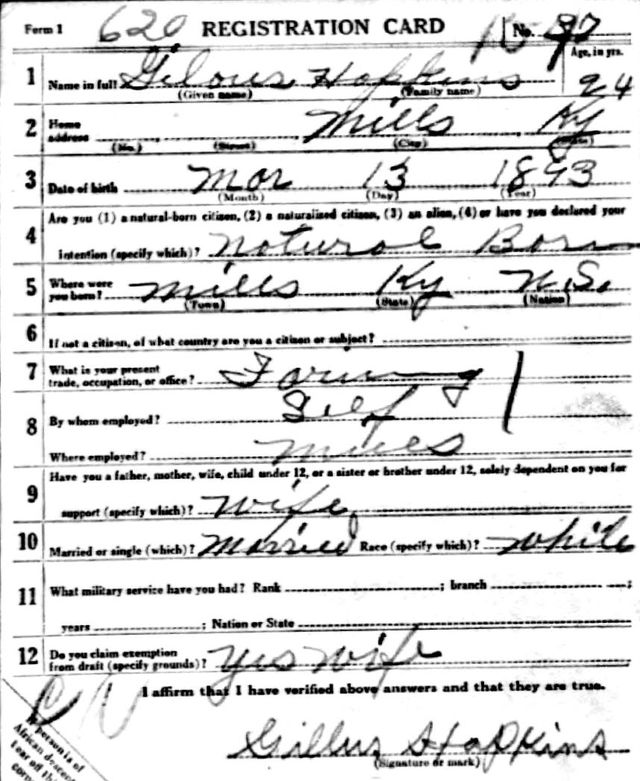 Form 1 620 REGISTRATION CARD No. 97
1 Name in full Gilous Hopkins Age, in yrs. 24
(Given name) (Family name)
2 Home address Mills Ky
(No.) (Street) (City) (State)
3 Date of birth Mar 13 1893
(Month) (Day) (Year)
4 Are you (1) a natural-born citizen, (2) a naturalized citizen, (3) an alien, (4) or have you declared your
intention (specify which)? Natural Born
5 Where were you born? Mills Ky U.S.
(Town) (State) (Nation)
6 If not a citizen, of what country are you a citizen or subject?
7 What is your present trade, occupation, or office? Farming
8 By whom employed? Self
Where employed? Mills
9 Have you a father, mother, wife, child under 12, or a sister or brother under 12, solely dependent on you for
support (specify which)? Wife
10 Married or single (which)? Married Race (specify which)? White
11 What military service have you had? Rank ; branch ;
years ; Nation or State
12 Do you claim exemption from draft (specify grounds)? Yes Wife
I affirm that I have verified above answers and that they are true.
Gillus Hopkins
(Signature or mark)
If person is of
African descent
tear off this
corner